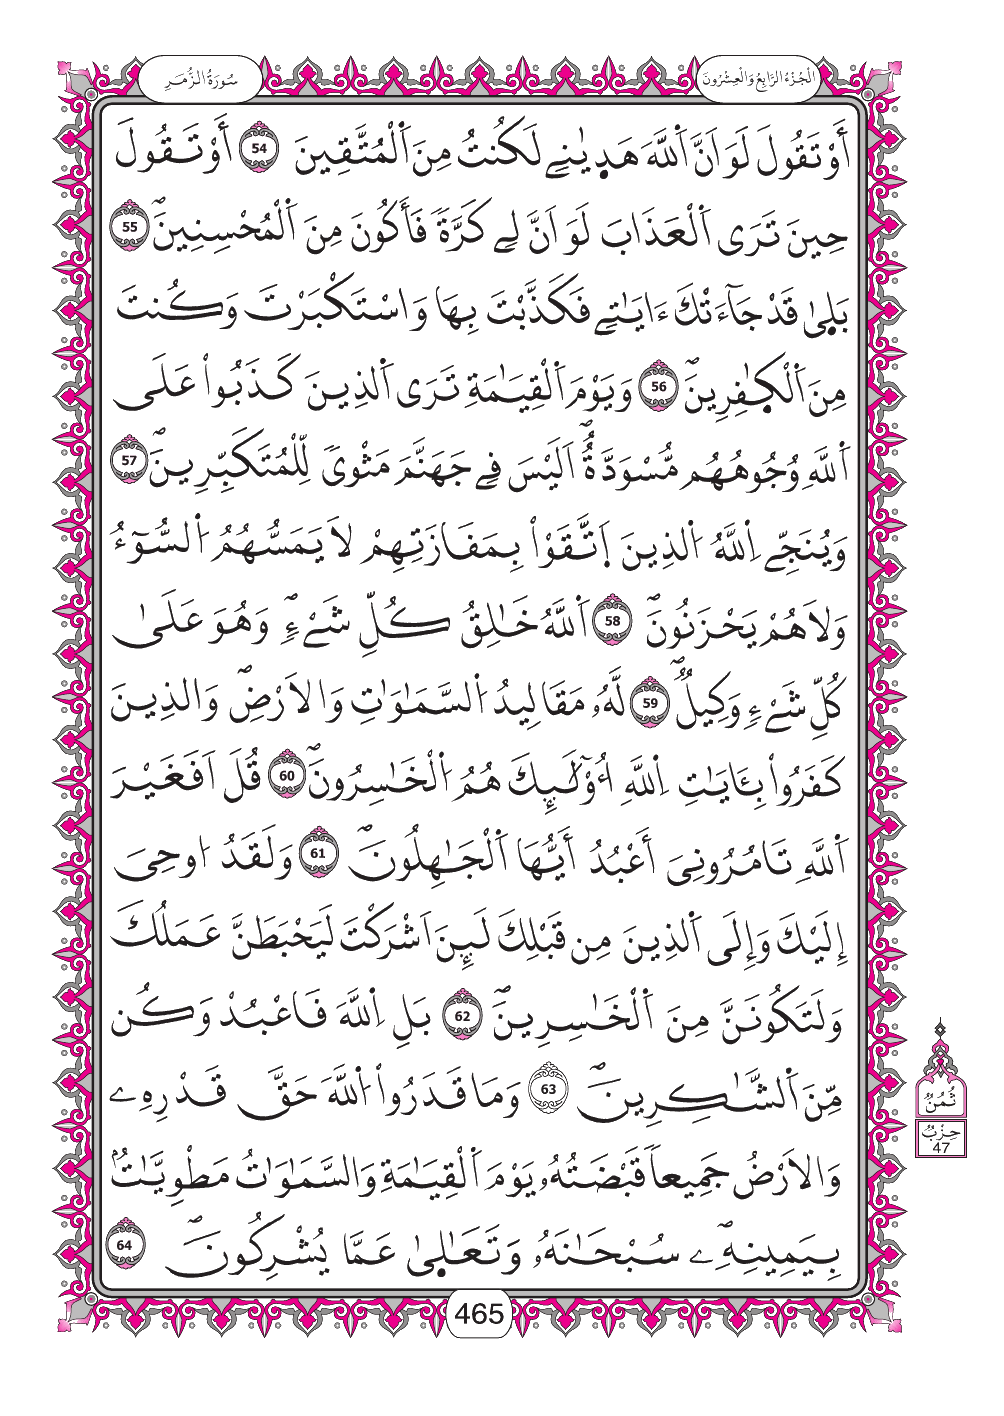 سُورَةُ الزُّمَرِ
الْجُزْءُ الرَّابِعُ وَالْعِشْرُونَ
أَوْ تَقُولَ لَوَ اَنَّ اَ۬للَّهَ هَد۪يٰنِے لَكُنتُ مِنَ اَ۬لْمُتَّقِينَ 54 أَوْ تَقُولَ
حِينَ تَرَى اَ۬لْعَذَابَ لَوَ اَنَّ لِے كَرَّةٗ فَأَكُونَ مِنَ اَ۬لْمُحْسِنِينَۖ 55
بَل۪يٰ قَدْ جَآءَتْكَ ءَايَٰتِے فَكَذَّبْتَ بِهَا وَاسْتَكْبَرْتَ وَكُنتَ
مِنَ اَ۬لْكٰ۪فِرِينَۖ 56 وَيَوْمَ اَ۬لْقِيَٰمَةِ تَرَى اَ۬لذِينَ كَذَبُواْ عَلَى
اَ۬للَّهِ وُجُوهُهُم مُّسْوَدَّةٌۖ اَلَيْسَ فِے جَهَنَّمَ مَثْويٗ لِّلْمُتَكَبِّرِينَۖ 57
وَيُنَجِّے اِ۬للَّهُ اُ۬لذِينَ اَ۪تَّقَوْاْ بِمَفَازَتِهِمْ لَا يَمَسُّهُمُ اُ۬لسُّوٓءُ
وَلَا هُمْ يَحْزَنُونَۖ 58 اَ۬للَّهُ خَٰلِقُ كُلِّ شَےْءٖۖ وَهُوَ عَلَىٰ
كُلِّ شَےْءٖ وَكِيلٞۖ 59 لَّهُۥ مَقَالِيدُ اُ۬لسَّمَٰوَٰتِ وَالَارْضِۖ وَالذِينَ
كَفَرُواْ بِـَٔايَٰتِ اِ۬للَّهِ أُوْلَٰٓئِكَ هُمُ اُ۬لْخَٰسِرُونَۖ 60 قُلَ اَفَغَيْرَ
اَ۬للَّهِ تَامُرُونِيَ أَعْبُدُ أَيُّهَا اَ۬لْجَٰهِلُونَۖ 61 وَلَقَدُ ا۟وحِيَ
إِلَيْكَ وَإِلَى اَ۬لذِينَ مِن قَبْلِكَ لَئِنَ اَشْرَكْتَ لَيَحْبَطَنَّ عَمَلُكَ
وَلَتَكُونَنَّ مِنَ اَ۬لْخَٰسِرِينَۖ 62 بَلِ اِ۬للَّهَ فَاعْبُدْ وَكُن
مِّنَ اَ۬لشَّٰكِرِينَۖ 63 وَمَا قَدَرُواْ اُ۬للَّهَ حَقَّ قَدْرِهِۦ
وَالَارْضُ جَمِيعاٗ قَبْضَتُهُۥ يَوْمَ اَ۬لْقِيَٰمَةِ وَالسَّمَٰوَٰتُ مَطْوِيَّٰتُۢ
بِيَمِينِهِۦۖ سُبْحَٰنَهُۥ وَتَعَٰل۪يٰ عَمَّا يُشْرِكُونَۖ 64
ثُمُنٌ
حِزْبُ
47
465